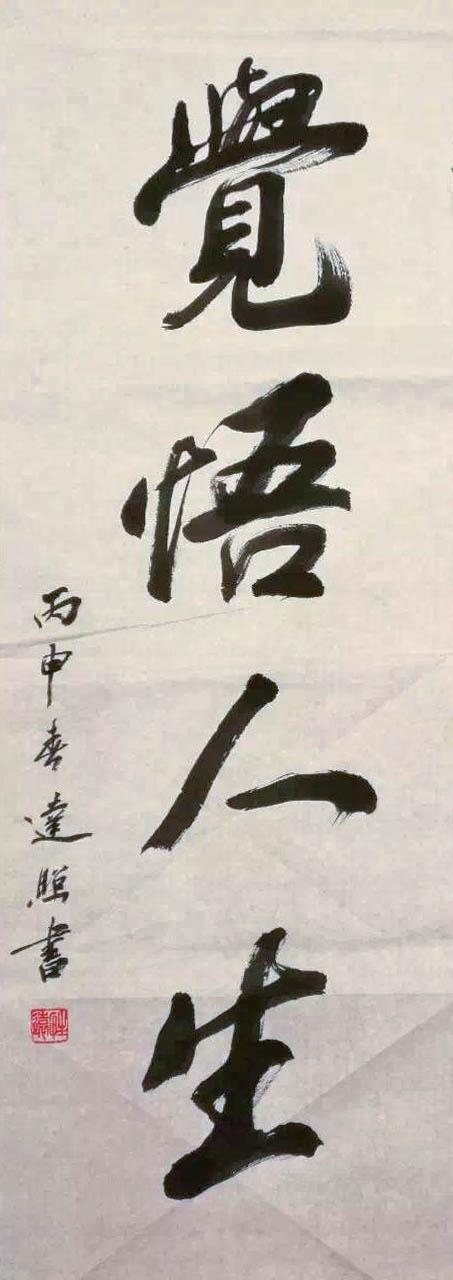 覺悟人生
丙申春達照書